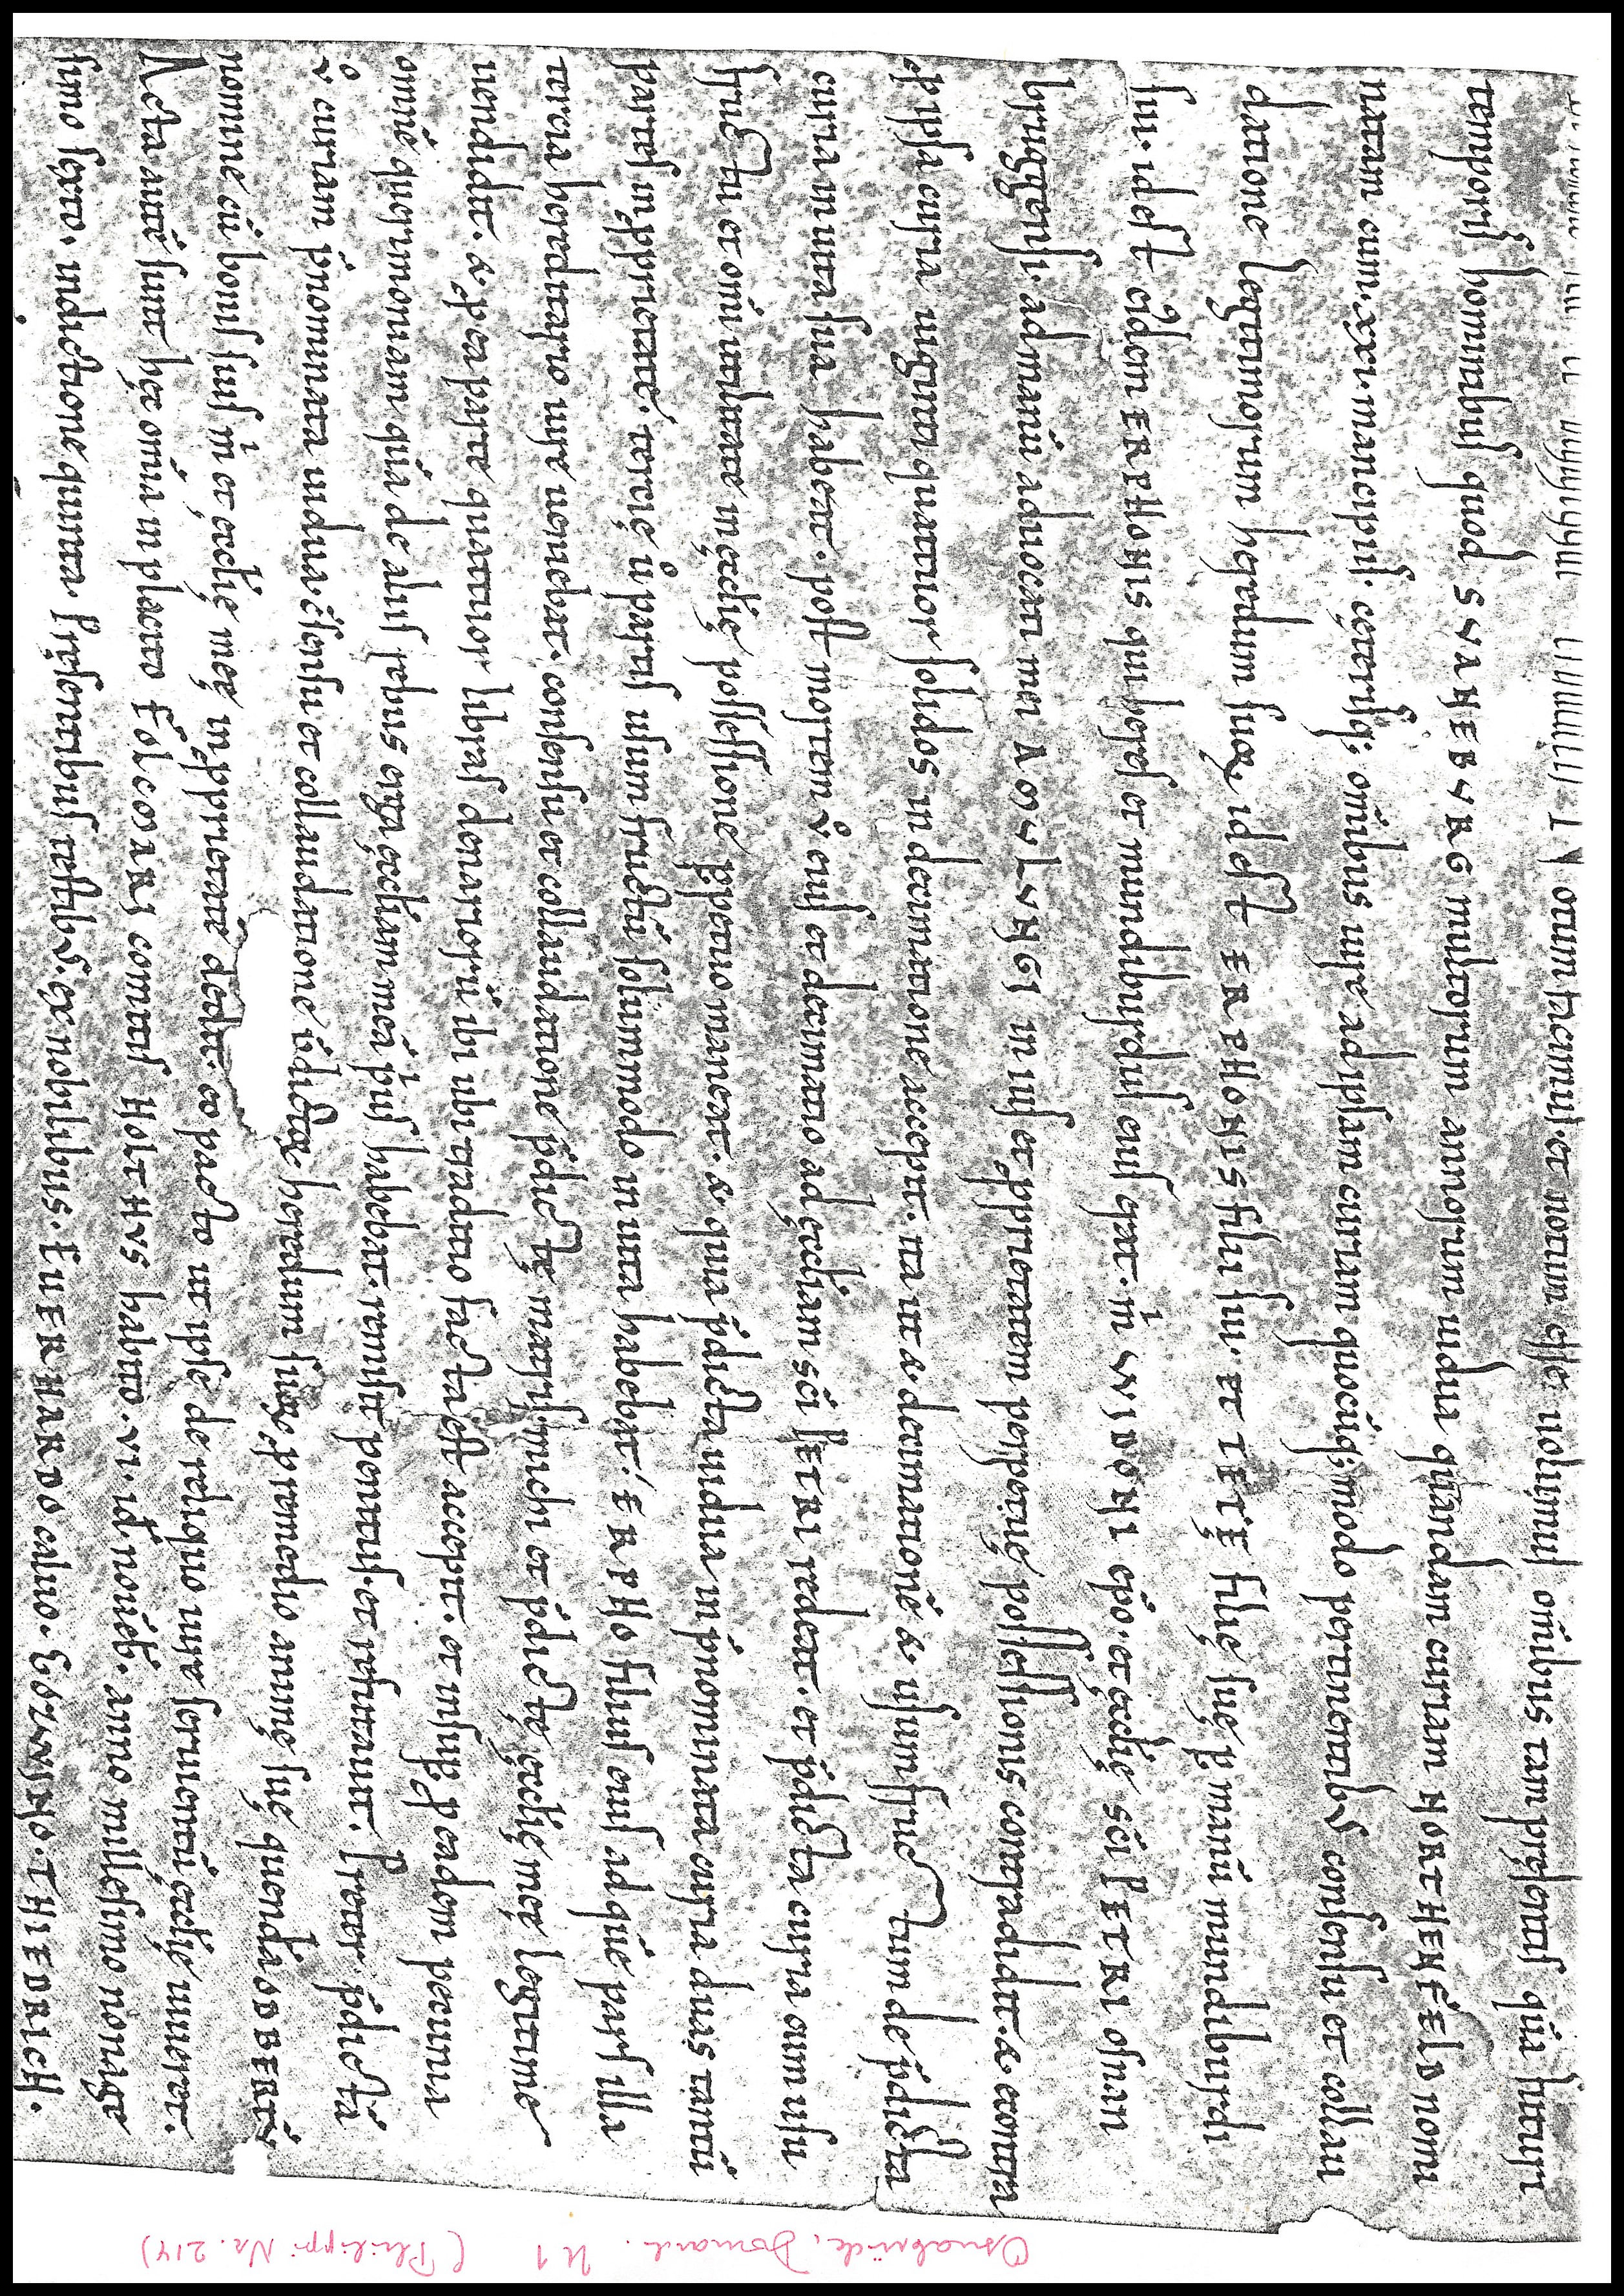 otum facimus. et notum esse uolumus om̄ibus tam presentis quā futuri
temporis hominibus quod SVANEBVRG multorum annorum uidua quandam curiam NORTHENFELD nomi
natam cum .xxv. mancipiis. ceterisq; om̄ibus iure ad ipsam curiam quocūq; modo pertinentibꝰ consensu et collau
datione legitimorum heredum suoꝝ. id est ERPHONIS filii sui. et TETĘ filię suę ꝑ manū mundiburdi
sui. id est eidem ERPHONIS qui heres et mundiburdus eius erat. m̊ WIDONI ep̄o. et ęcclię sc̄i PETRI osnam
bruggensi. ad manū aduocati mei AMVLVNGI in ius et ꝓprietatem perpetuę possessionis contradidit. & econtra
de ipsa curia uiginti quattuor solidos in decimatione accepit. ita ut & decimationē & usumfructum de p̄dicta
curia in uita sua haberet. post mortem v̊ eius et decimatio ad ęccliam sc̄i PETRI redeat. et p̄dicta curia cum usu
fructu et om̄i utilitate in ęcclię possessione ꝑpetuo maneat. & quia p̄dicta uidua in p̄nominata curia duas tantū
partes in ꝓprietate. tercię ů partis usum fructū solummodo in uita habebat. ERPHO filius eius ad quē pars illa
tercia hereditario iure ueniebat. consensu et collaudatione p̄dictę matris. michi et p̄dictę ęcclię meę legitime
uendidit. & ꝓ ea parte quattuor libras denariorū ibi ubi traditio facta est accepit. et insuꝑ ꝓ eadem pecunia
omnē querimoniam quā de aliis rebus erga ęccliam meā p̄us habebat. remisit penitus. et refutauit. Preter p̄dictā
v̊ curiam p̄nominata uidua. c̄sensu et collaudatione p̄dictoꝝ heredum suoꝝ, ꝓ remedio animę suę quendā ODBERTV̄
nomine cū bonis suis m̊ et ęcclię meę in ꝓprietatē dedit. eo pacto ut ipse de reliquo iure seruientiū ęcclię uiueret.
Acta autē sunt hęc om̄ia in placito FOLCMARI comitis HOLTHVS habito. VI. id nouēb. anno millesimo nonage
simo sexto. indictione quinta. Pręsentibus testibꝰ. ex nobilibus. EUERHARDO caluo. GOZWINO. THIEDRICH.
Osnabrück, Domarch. U 1 (Philippi Nr. 214)